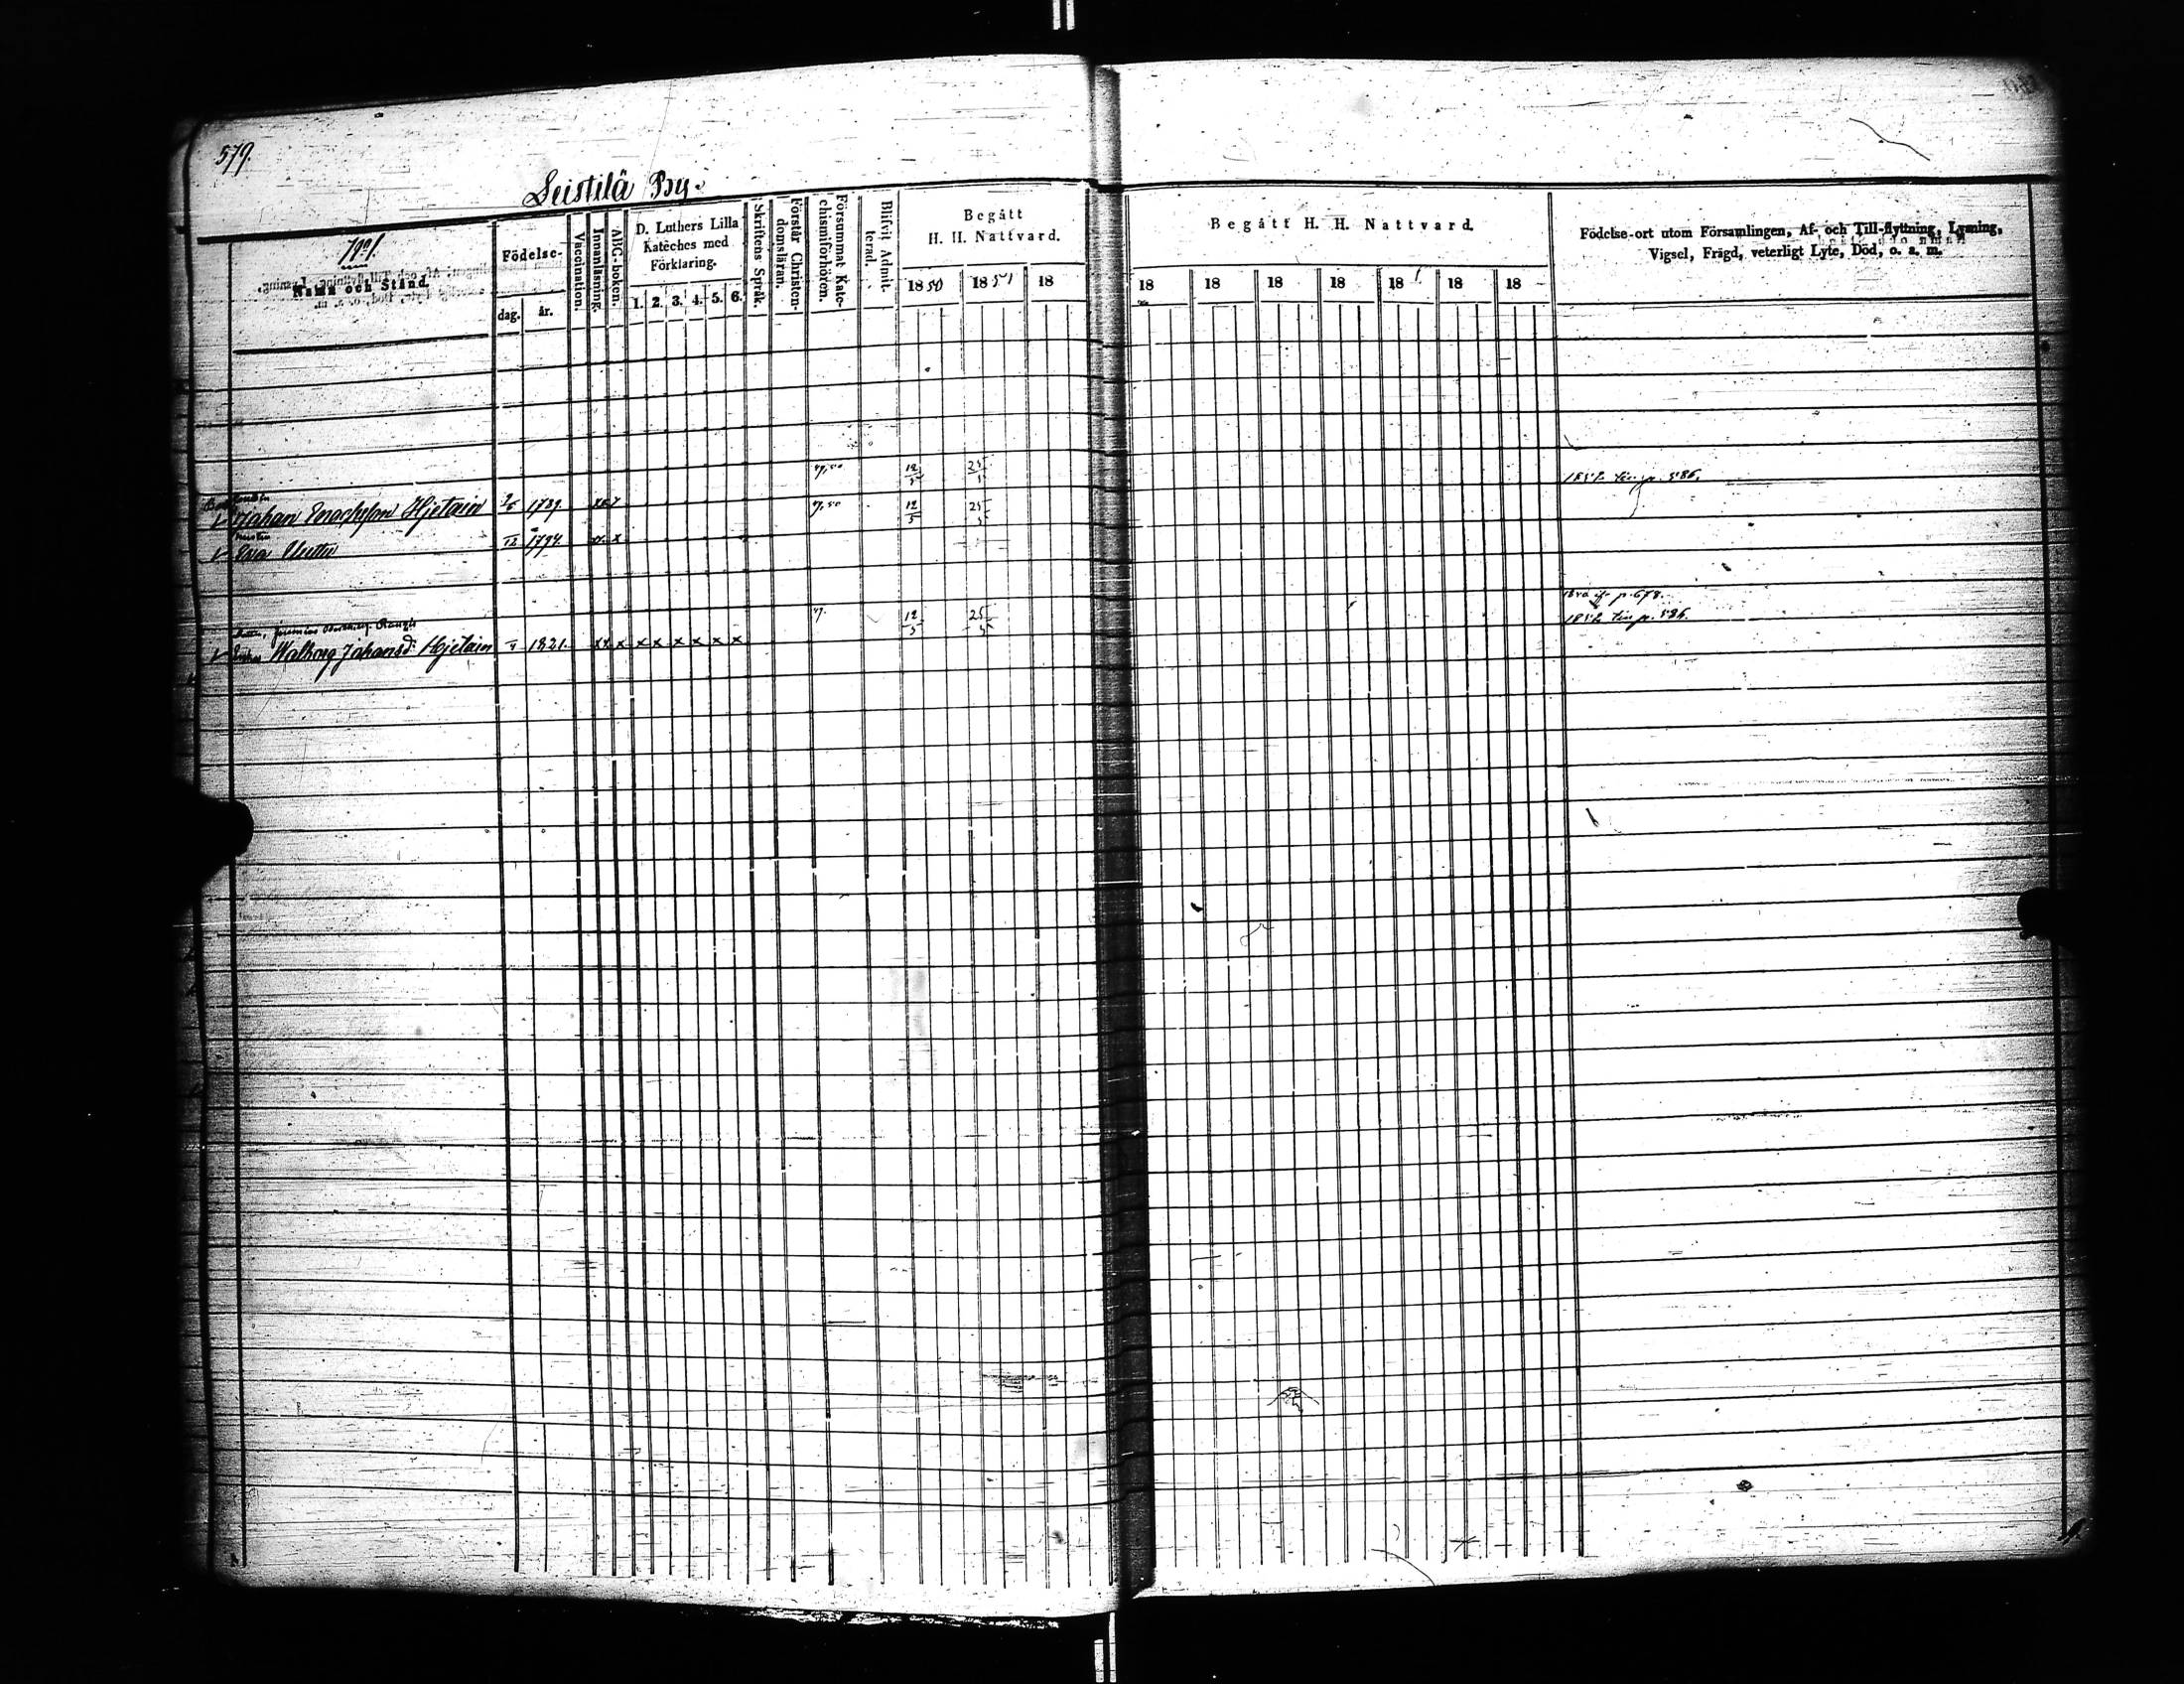 579.
Leistilä By.
No 1.
Namn och Stånd.
Födelse-
dag.
år.
Vaccination.
Innanläsning.
ABC-boken.
D. Luthers Lilla
Kateches med
Förklaring.
1. 2. 3. 4. 5. 6.
Skriftens Språk.
Förstår Christen-
domsläran.
Försummat Kate-
chismiförhören.
Blifvit Admit-
terad.
Begått
H. H. Nattvard.
1850 1851 18
Begått H. H. Nattvard.
18 18 18 18 18 18 18
Födelse-ort utom Församlingen, Af- och Till-flyttning, Lysning,
Vigsel, Frägd, veterligt Lyte, Död, o. a. m.
49, 50 12/5 25/5
Johan Enochsson Hjetain 1789. 49, 50 12/5 25/5
Hustru
Eva 1794. x x
p. 678.
49. 12/5 25/5
Enkan Walborg Johansd. Hjetain 1821. x x x x x x x x x